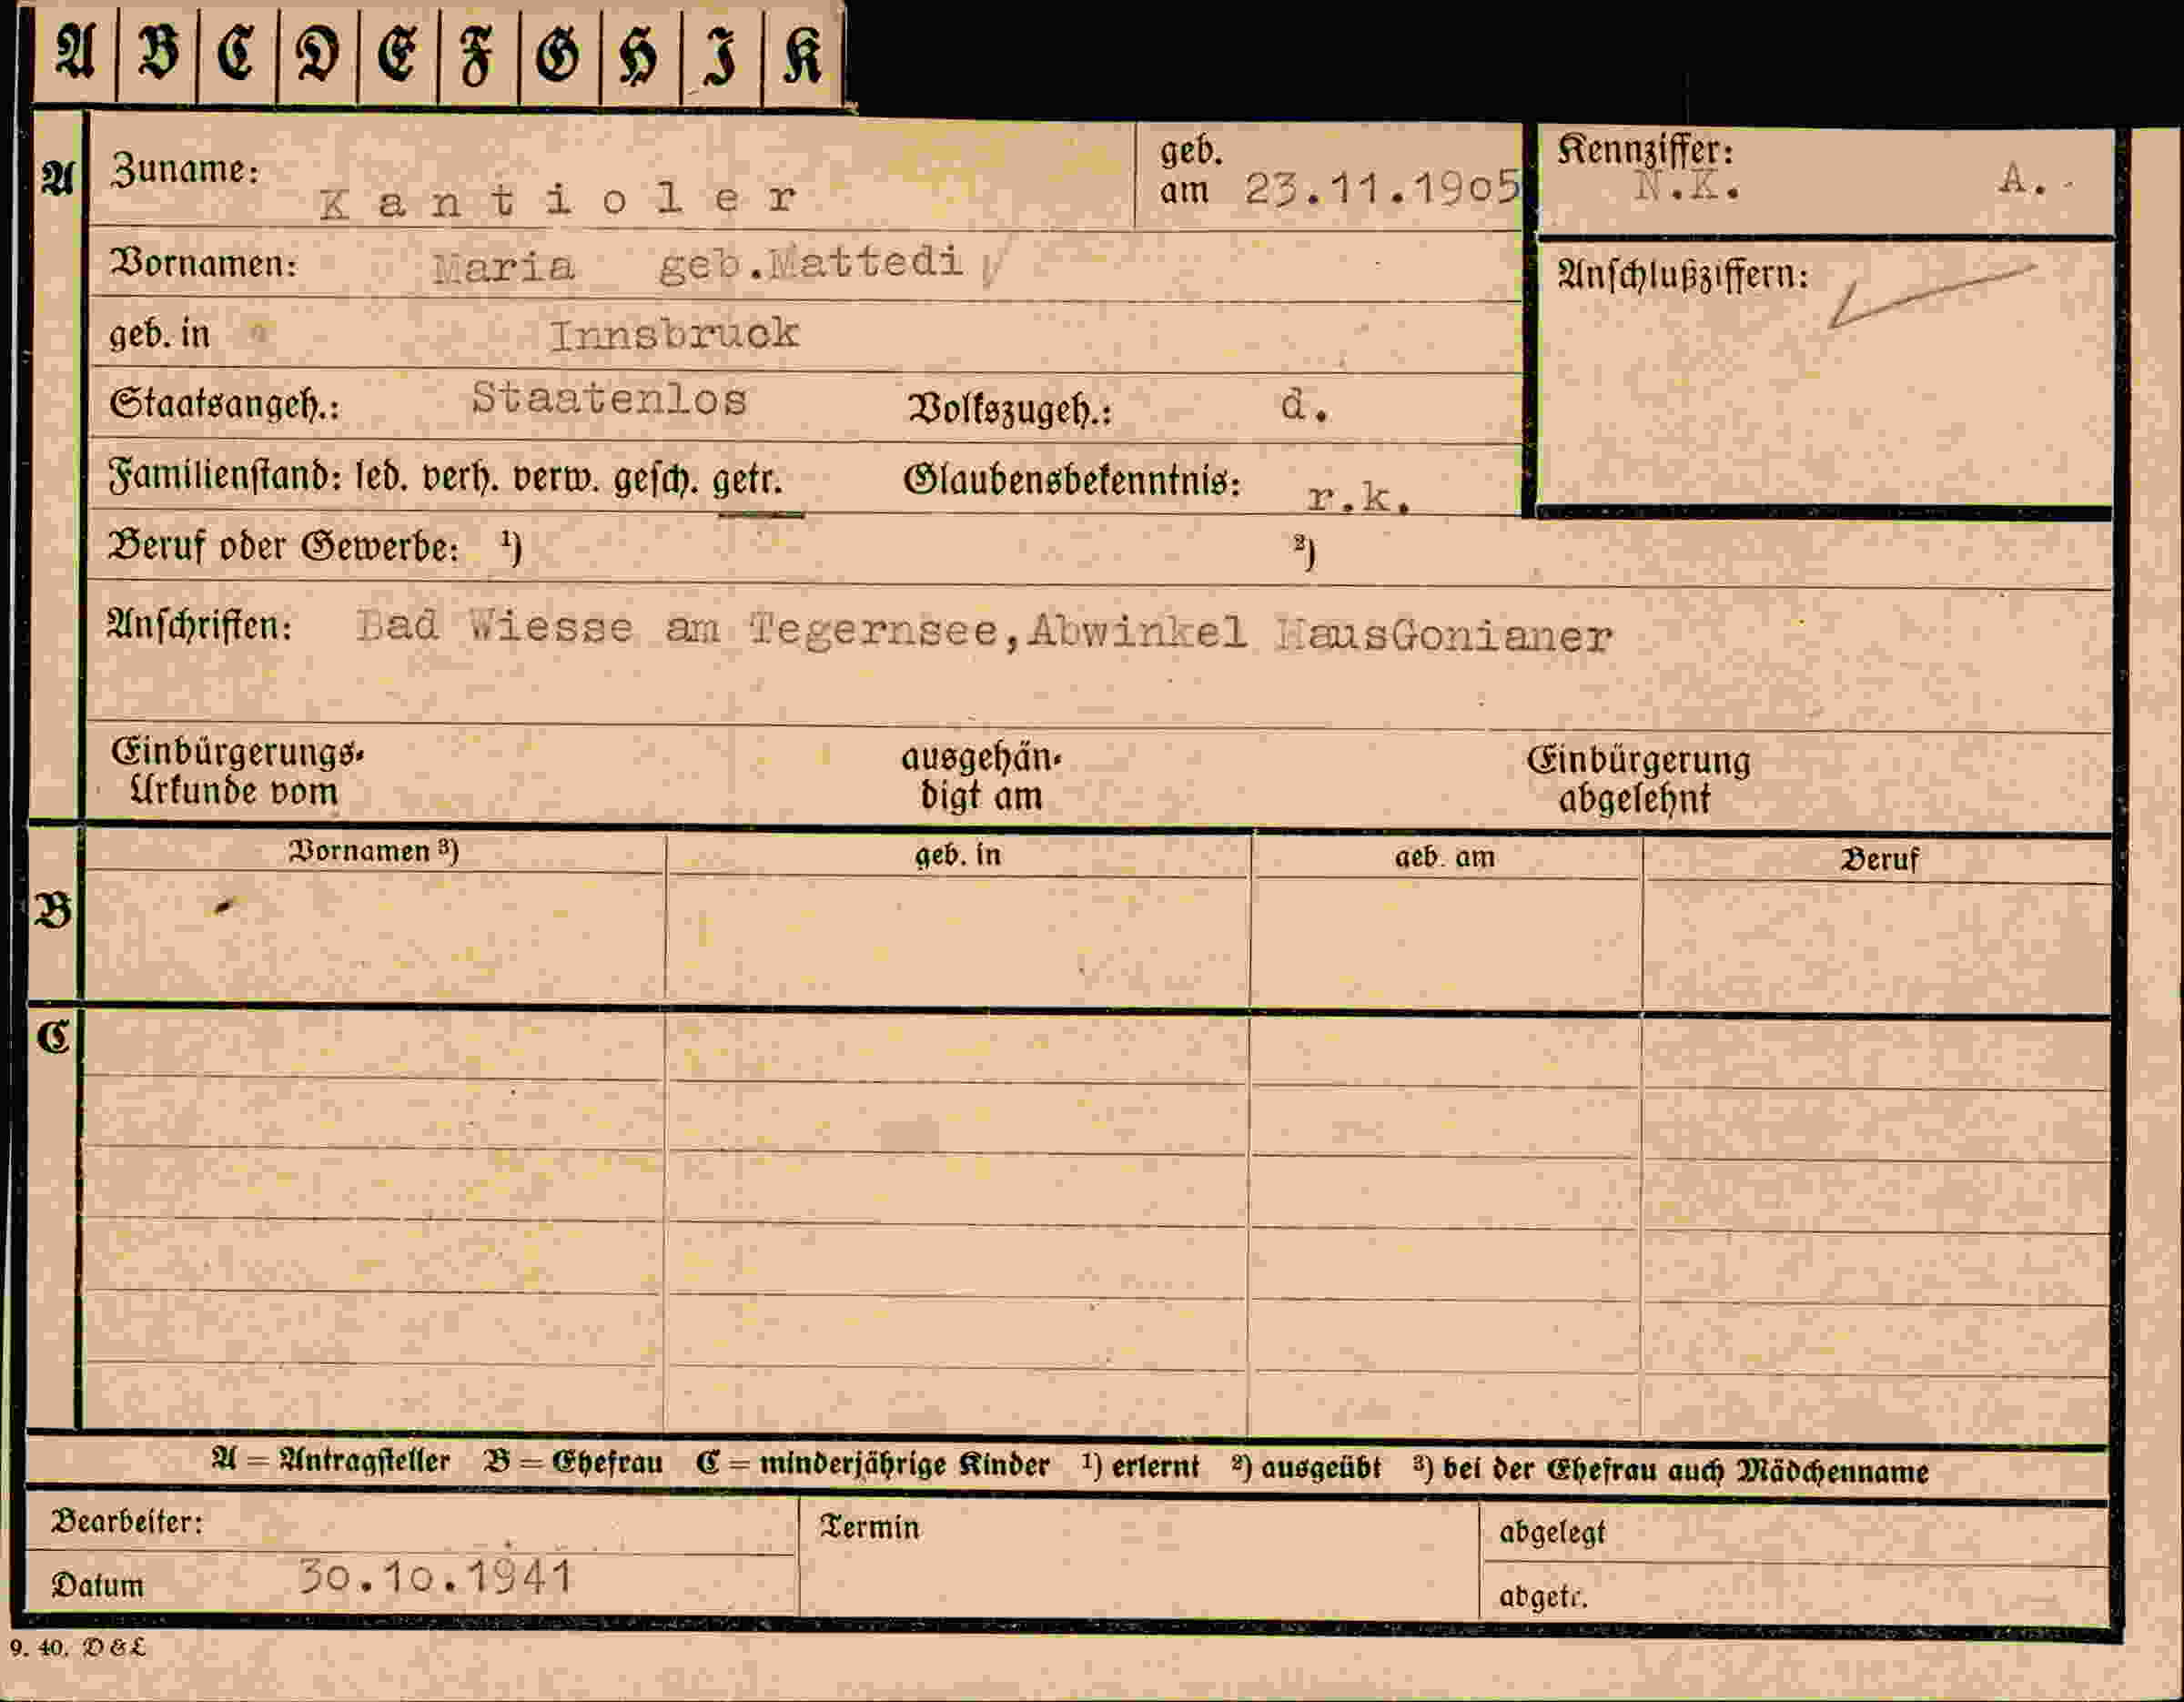 A B C D E F G H I K
A Zuname: Kantioler geb. am 23.11.1905 Kennziffer: N.K. A.
Vornamen: Maria geb.Mattedi
Anschlußziffern:
geb. in Innsbruck
Staatsangeh.: Staatenlos Volkszugeh.: d.
Familienstand: led. verh. verw. gesch. getr. Glaubensbekenntnis: r.k.
Beruf oder Gewerbe: ¹) ²)
Anschriften: Bad Wiesse am Tegernsee,Abwinkel HausGonianer
Einbürgerungs- ausgehän- Einbürgerung
Urkunde vom digt am abgelehnt
Vornamen ³) geb. in geb. am Beruf
B
C
A = Antragsteller B = Ehefrau C = minderjährige Kinder ¹) erlernt ²) ausgeübt ³) bei der Ehefrau auch Mädchenname
Bearbeiter: Termin abgelegt
Datum 30.10.1941 abgetr.
9. 40. D & L